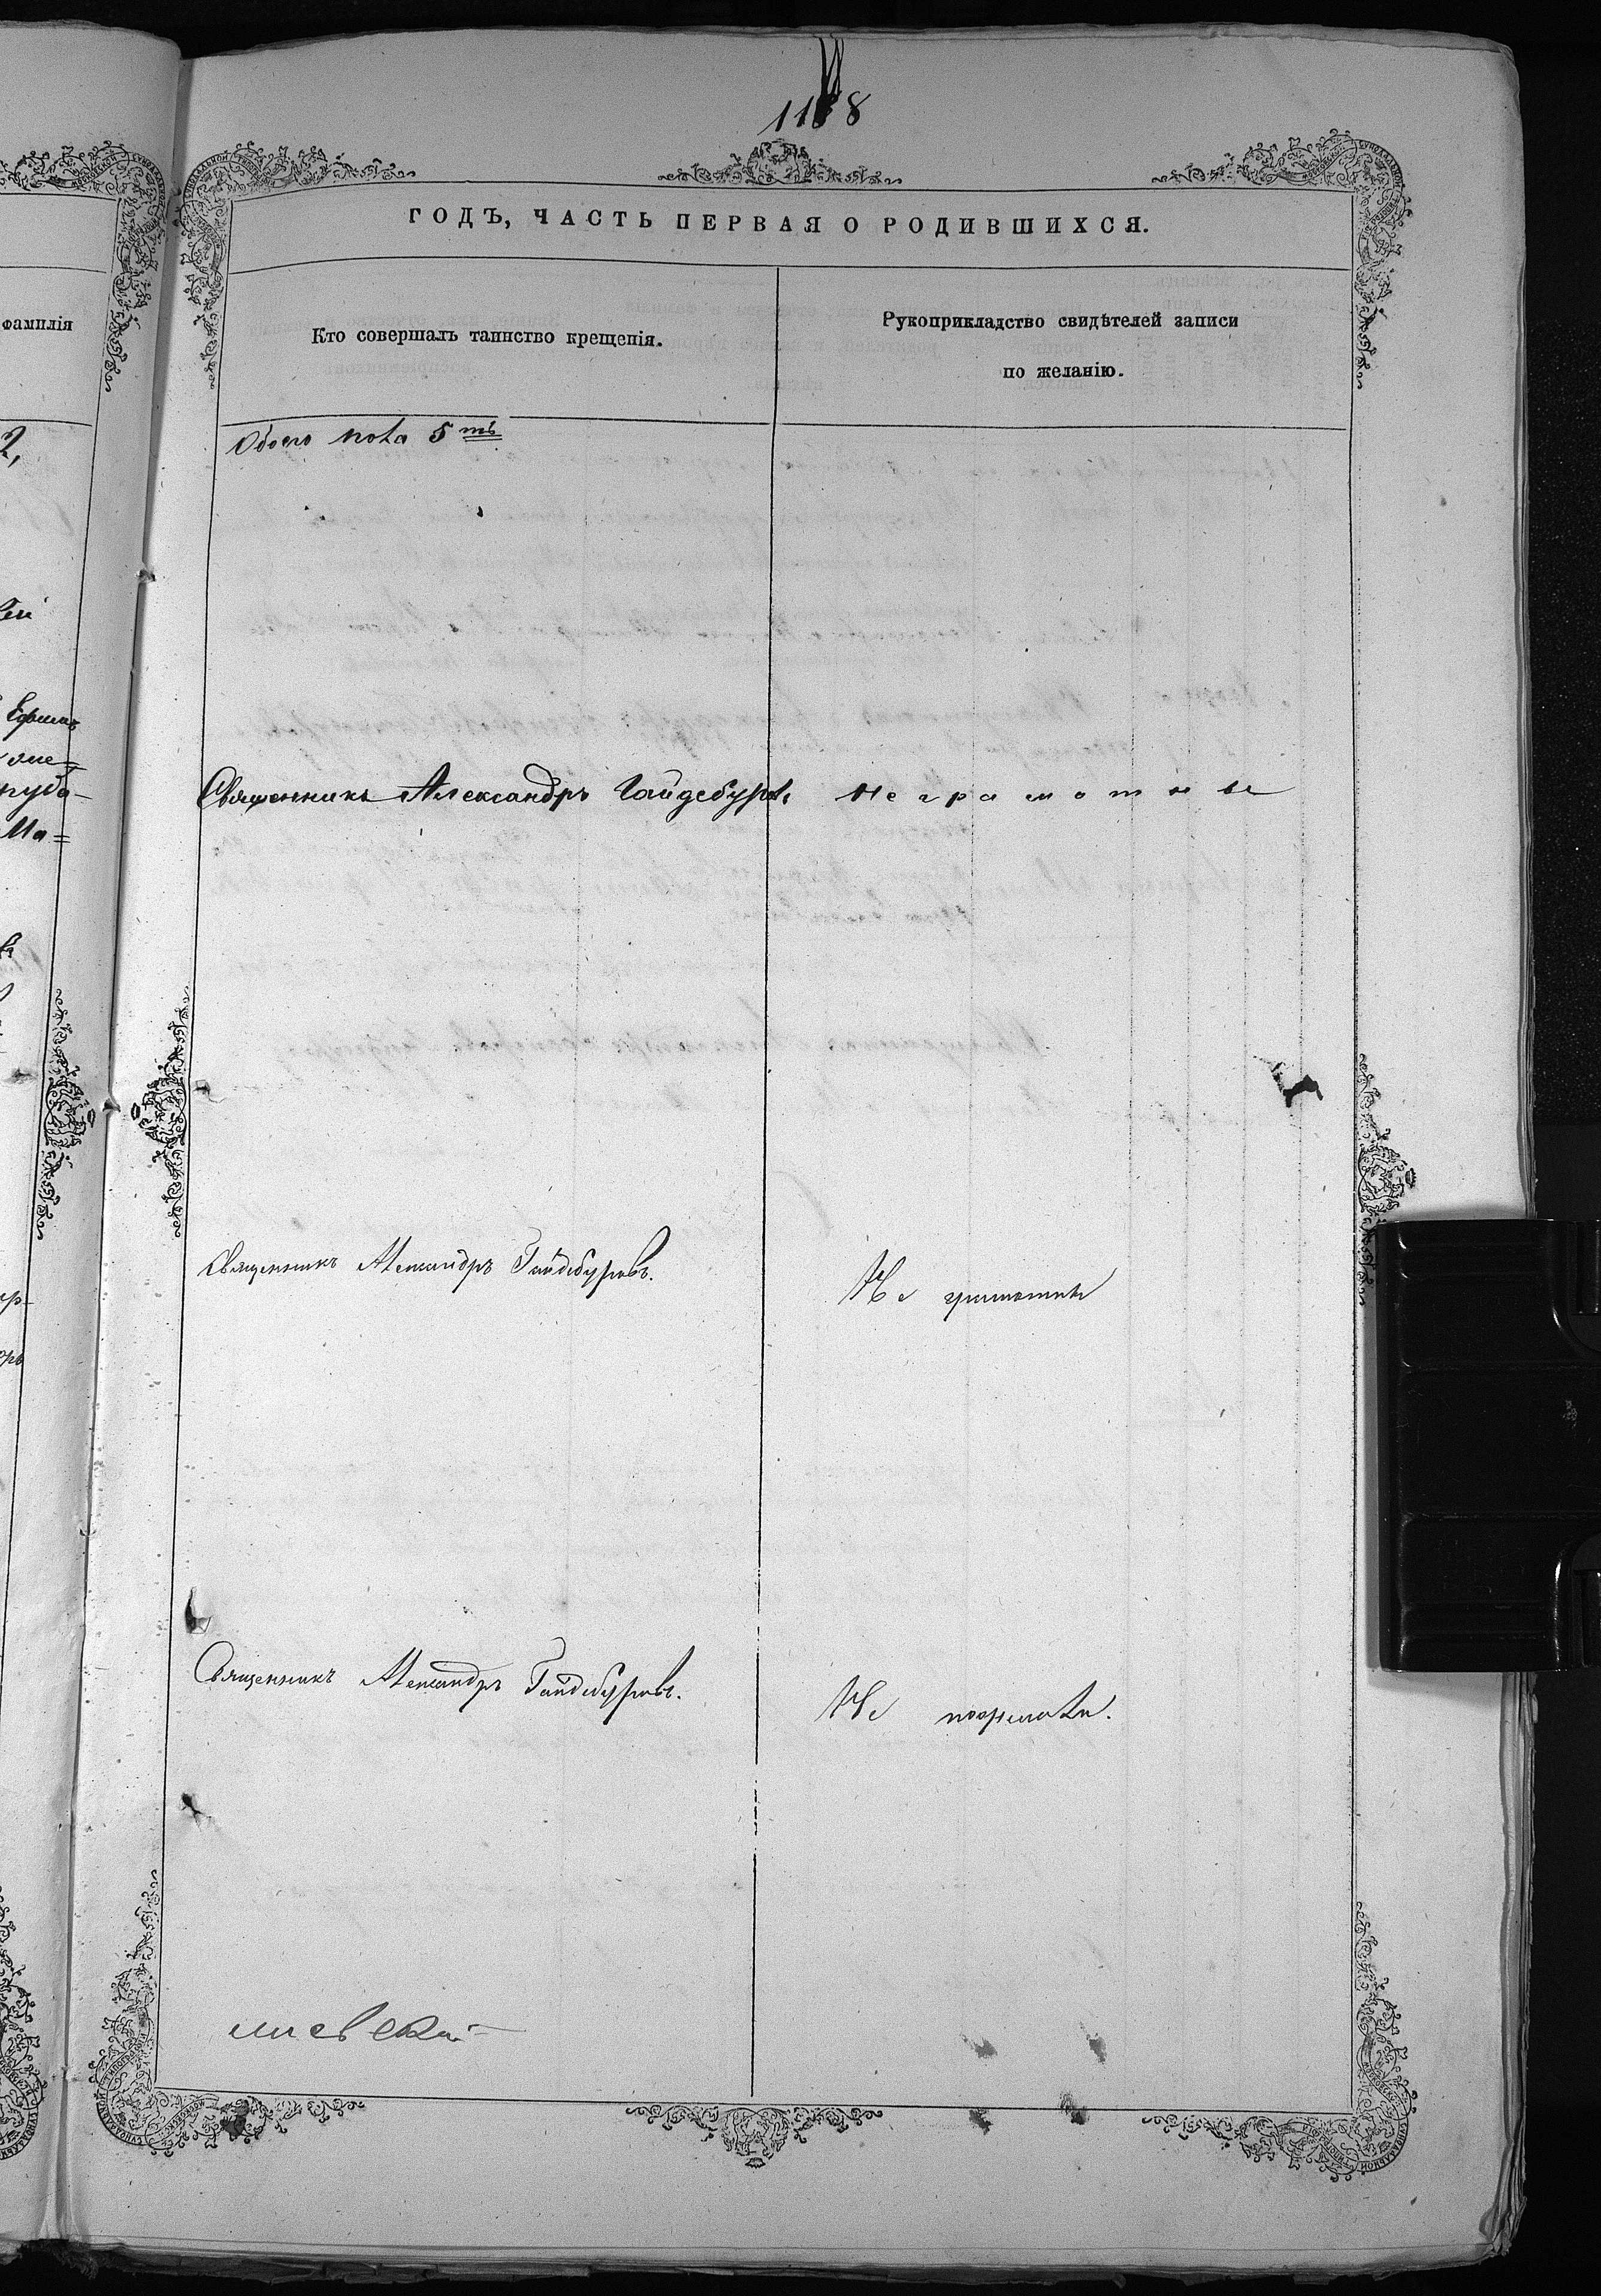 1188
ГОДЪ, ЧАСТЬ ПЕРВАЯ О РОДИВШИХСЯ.
фамилія
Кто совершалъ таинство крещенія.
Рукоприкладство свидѣтелей записи
по желанію.
2,
Обоего пола 5 ть
Ефимъ
Ма=
Священникъ Александръ Гайдебуръ
Неграмотные
Священникъ Александръ Гайдебуровъ.
Не грамотны
Священникъ Александръ Гайдебуровъ.
Не пожелали.